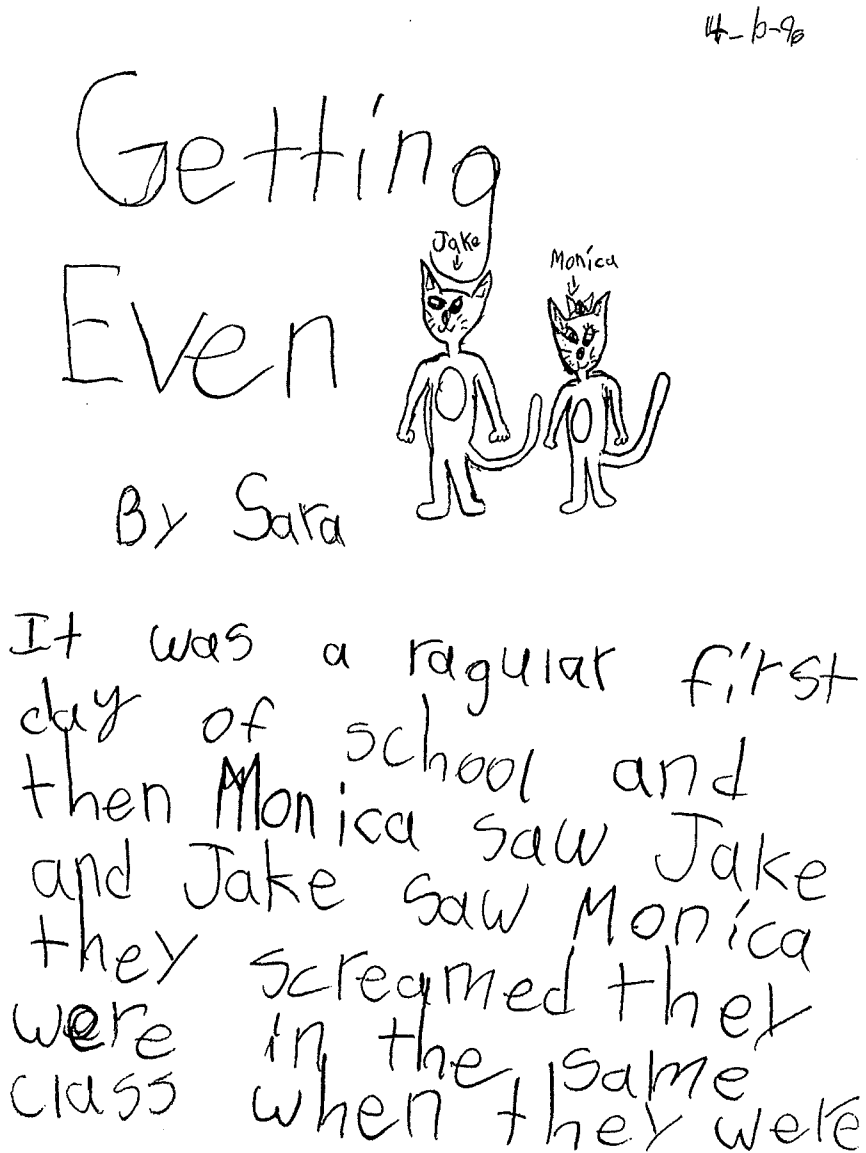 4-6-96
Getting
Jake
Monica
Even
By Sara
It was a ragular first
day of school and
then Monica saw Jake
and Jake saw Monica
they screamed they
were in the same
class when they were